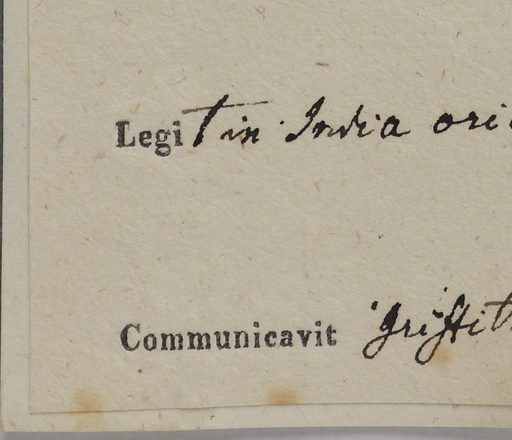 Legit in India ori
Communicavit Griffith